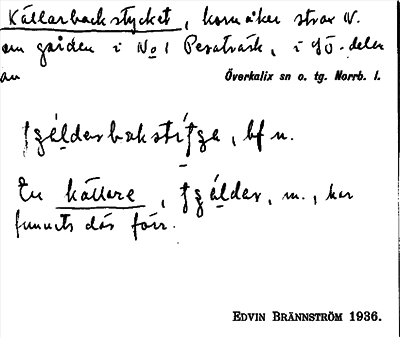 Källarbackstycket, kornåker strax N.
om gården i No 1 Pesaträsk, i SÖ-delen
av
Överkalix sn o. tg. Norrb. l.
bf n.
En källare, m., har
funnits där förr.
EDVIN BRÄNNSTRÖM 1936.